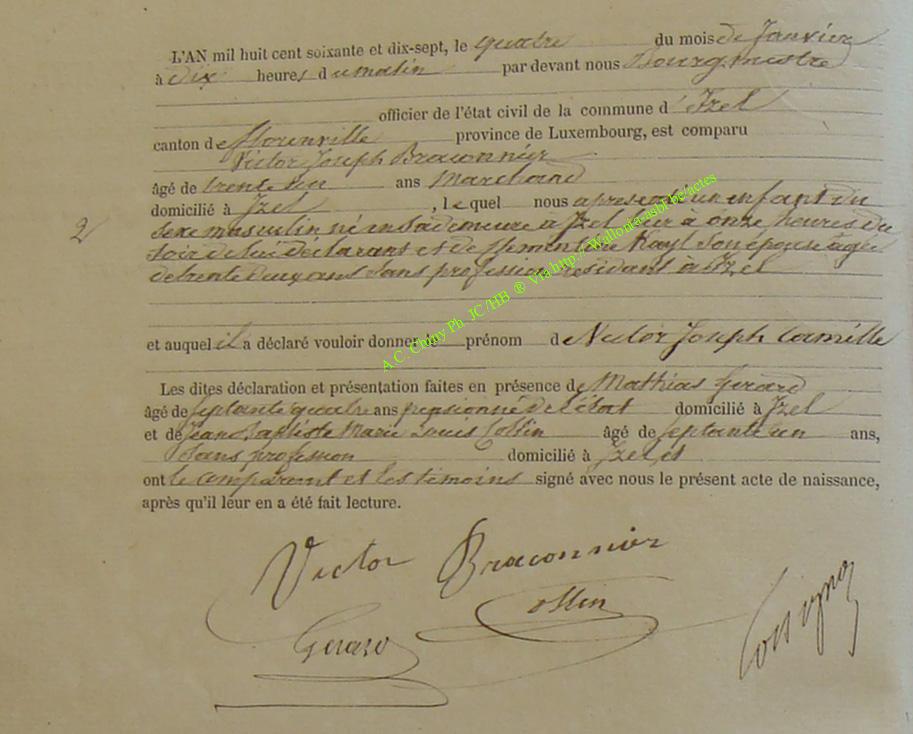 L'AN mil huit cent soixante et dix-sept, le quatre du mois de Janvier
à dix heures du matin par devant nous Bourgmestre
officier de l'état civil de la commune d'Izel
canton de Florenville province de Luxembourg, est comparu
Victor Joseph Braconnier
âgé de trente un ans Marchand
domicilié à Izel, lequel nous a présenté un enfant du
2 sexe masculin né en sa demeure à Izel hier à onze heures du
soir de lui déclarant et de Clémentine son épouse âgée
de trente deux ans sans profession résidant à Izel
et auquel il a déclaré vouloir donner le prénom de Victor Joseph Camille
Les dites déclaration et présentation faites en présence de Mathias Gerard
âgé de septante quatre ans pensionné de l'état domicilié à Izel
et de Jean Baptiste Marie Louis Collin âgé de septante un ans,
sans profession domicilié à Izel et
ont le comparant et les témoins signé avec nous le présent acte de naissance,
après qu'il leur en a été fait lecture.
Victor Braconnier
Collin
Gerard
A C. Chiny Ph. JC /HB ® Via http://Wallonia-asbl.be/actes